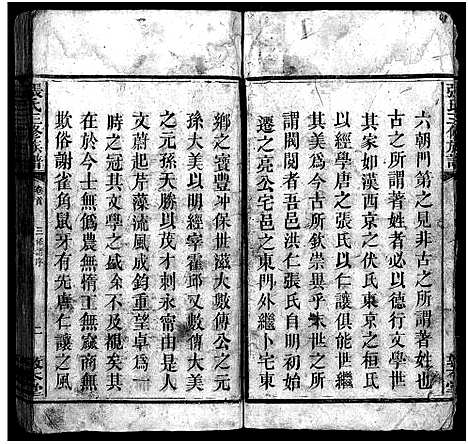 六朝門第之見非古之所謂著姓也
古之所謂著姓者必以德行文學世
其家如漢西京之伏氏東京之桓氏
以經學唐之張氏以仁讓俱能世繼
其美為末世所欽崇異乎人自為
遷之亮公宅邑之東門外繼卜宅東
鄉之寶豐冲保世滋大數傳公之元
孫大美以明經宰霍邱又數傳大美
之元孫天勝以茂才刺永甯由是人
文蔚起芹藻流風成鈞重望卓為一
時之冠其文學之盛余不及襯矣其
在於今士無偽農無惰工無窳商無
欺俗謝雀角鼠牙有先唐仁讓之風
張氏三修族譜
卷首
三修譜序